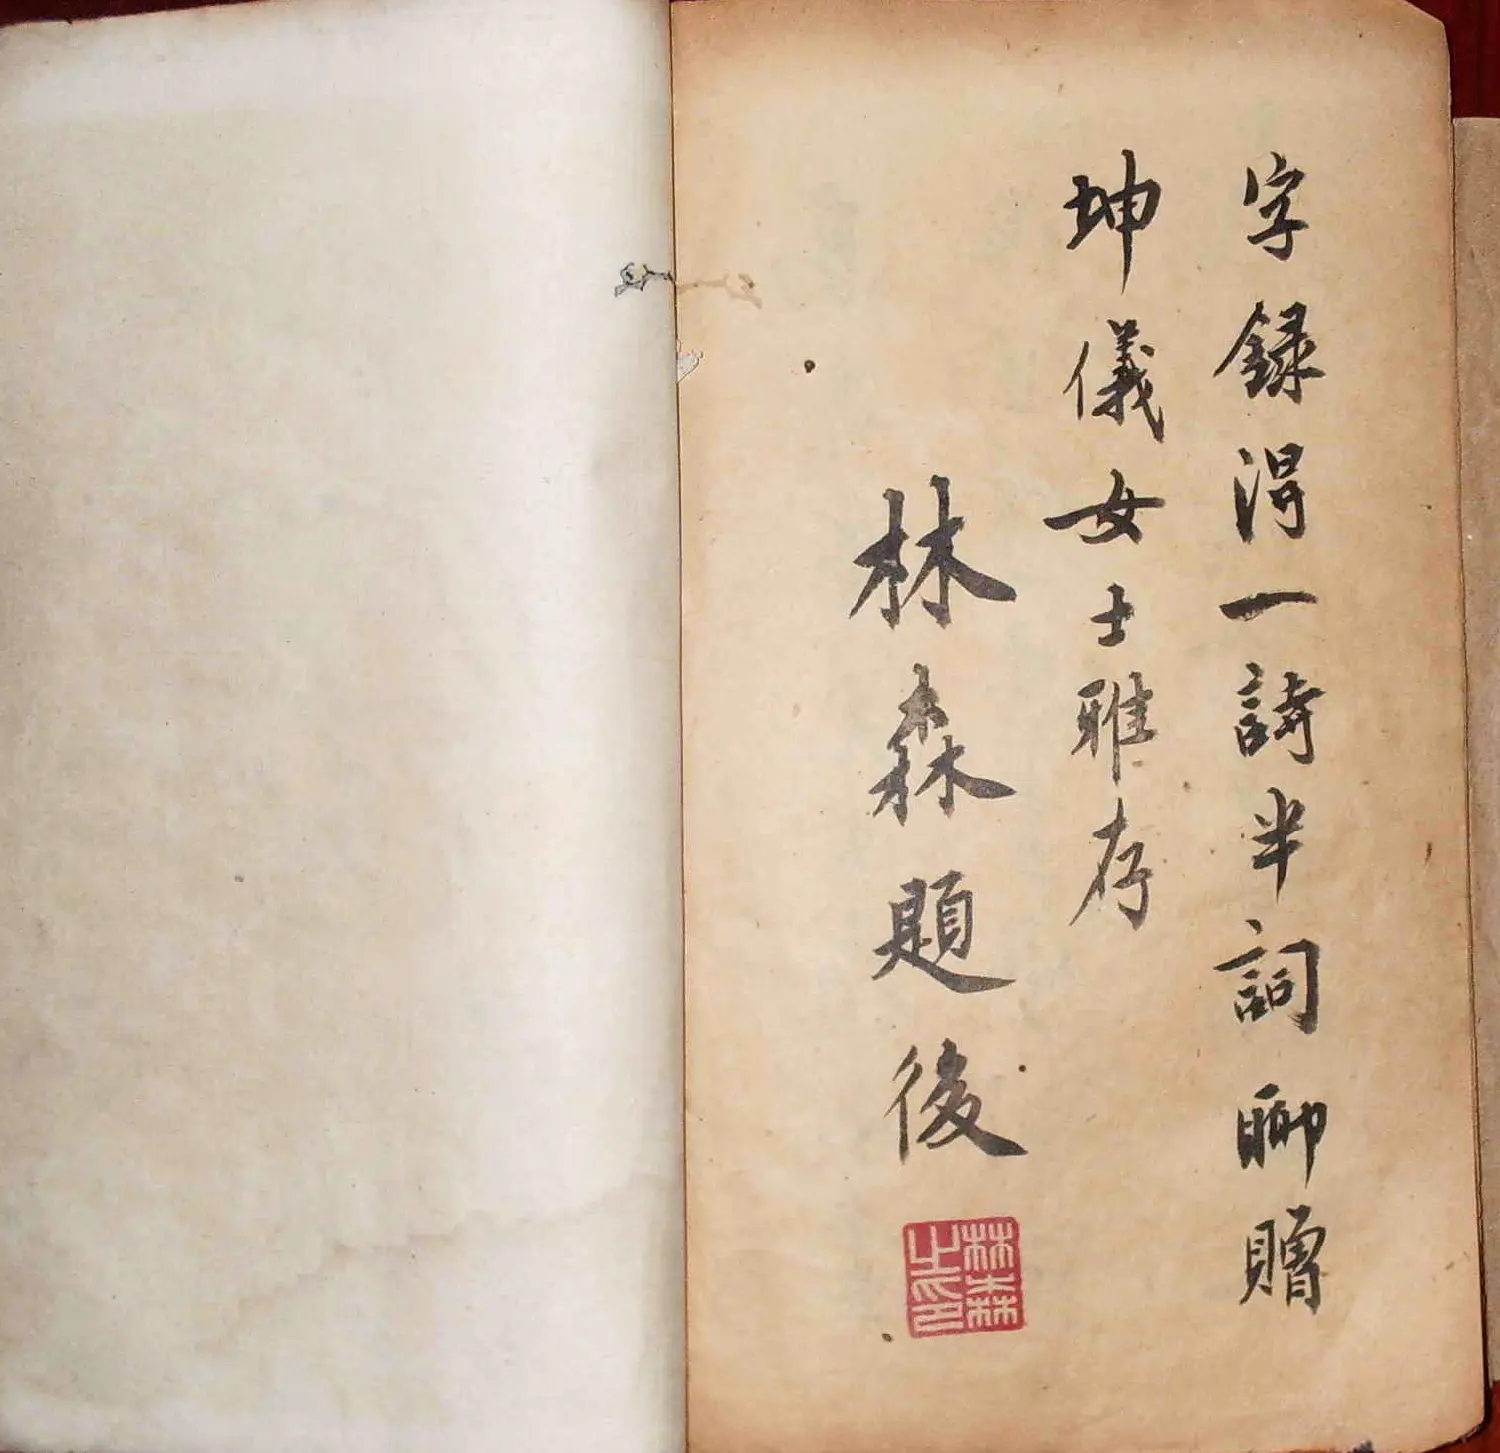 字録得一詩半詞聊贈
坤儀女士雅存
林森題後
林森之印